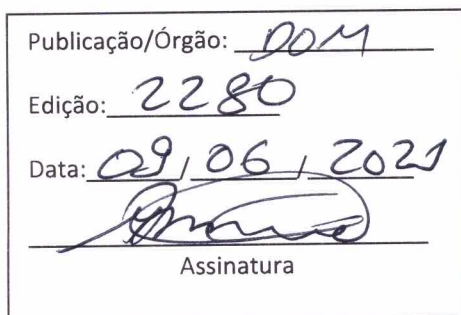 Publicação/Órgão: DOM
Edição: 2280
Data: 09/06/2021
Assinatura